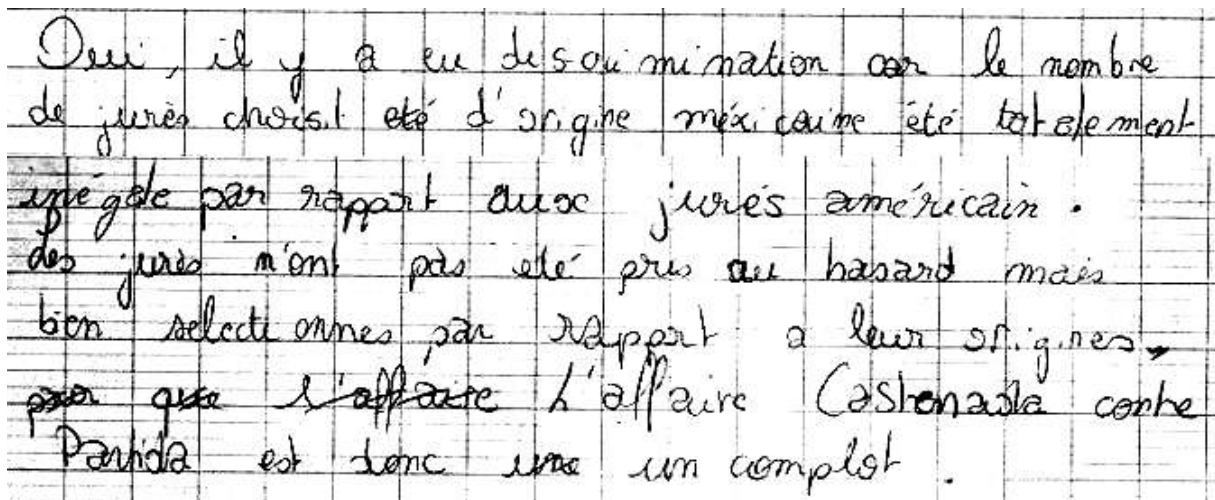 Oui, il y a eu desciumination car le nombre
de jurés choisit eté d'origine méxicaine été totalement
inégale par rapport aux jurés américain.
des jurés n'ont pas eté pris au hasard mais
bien selectionnes par rapport a leur origines,
par que l'affaire L'affaire Castenada contre
Partida est donc une un complot.